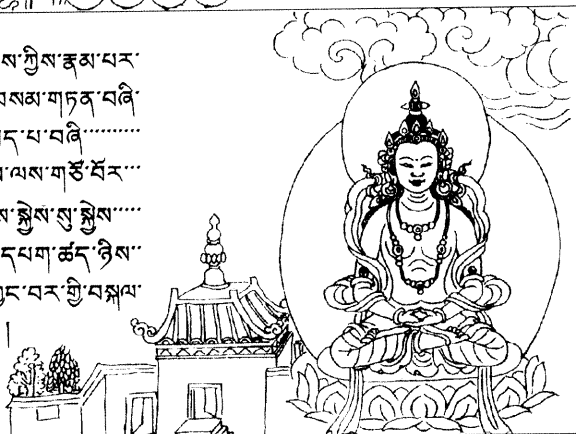 ས་ཀྱིས་རྣམ་པར་
བསམ་གཏན་བཞི་
ད་པ་བཞི་་་་་་་་་་
ལས་གཙོ་བོར་་་
ས་སྐྱེས་སུ་སྐྱེས་་་་་
དཔག་ཚད་ཉིས་་
བར་གྱི་བསྐལ་
།